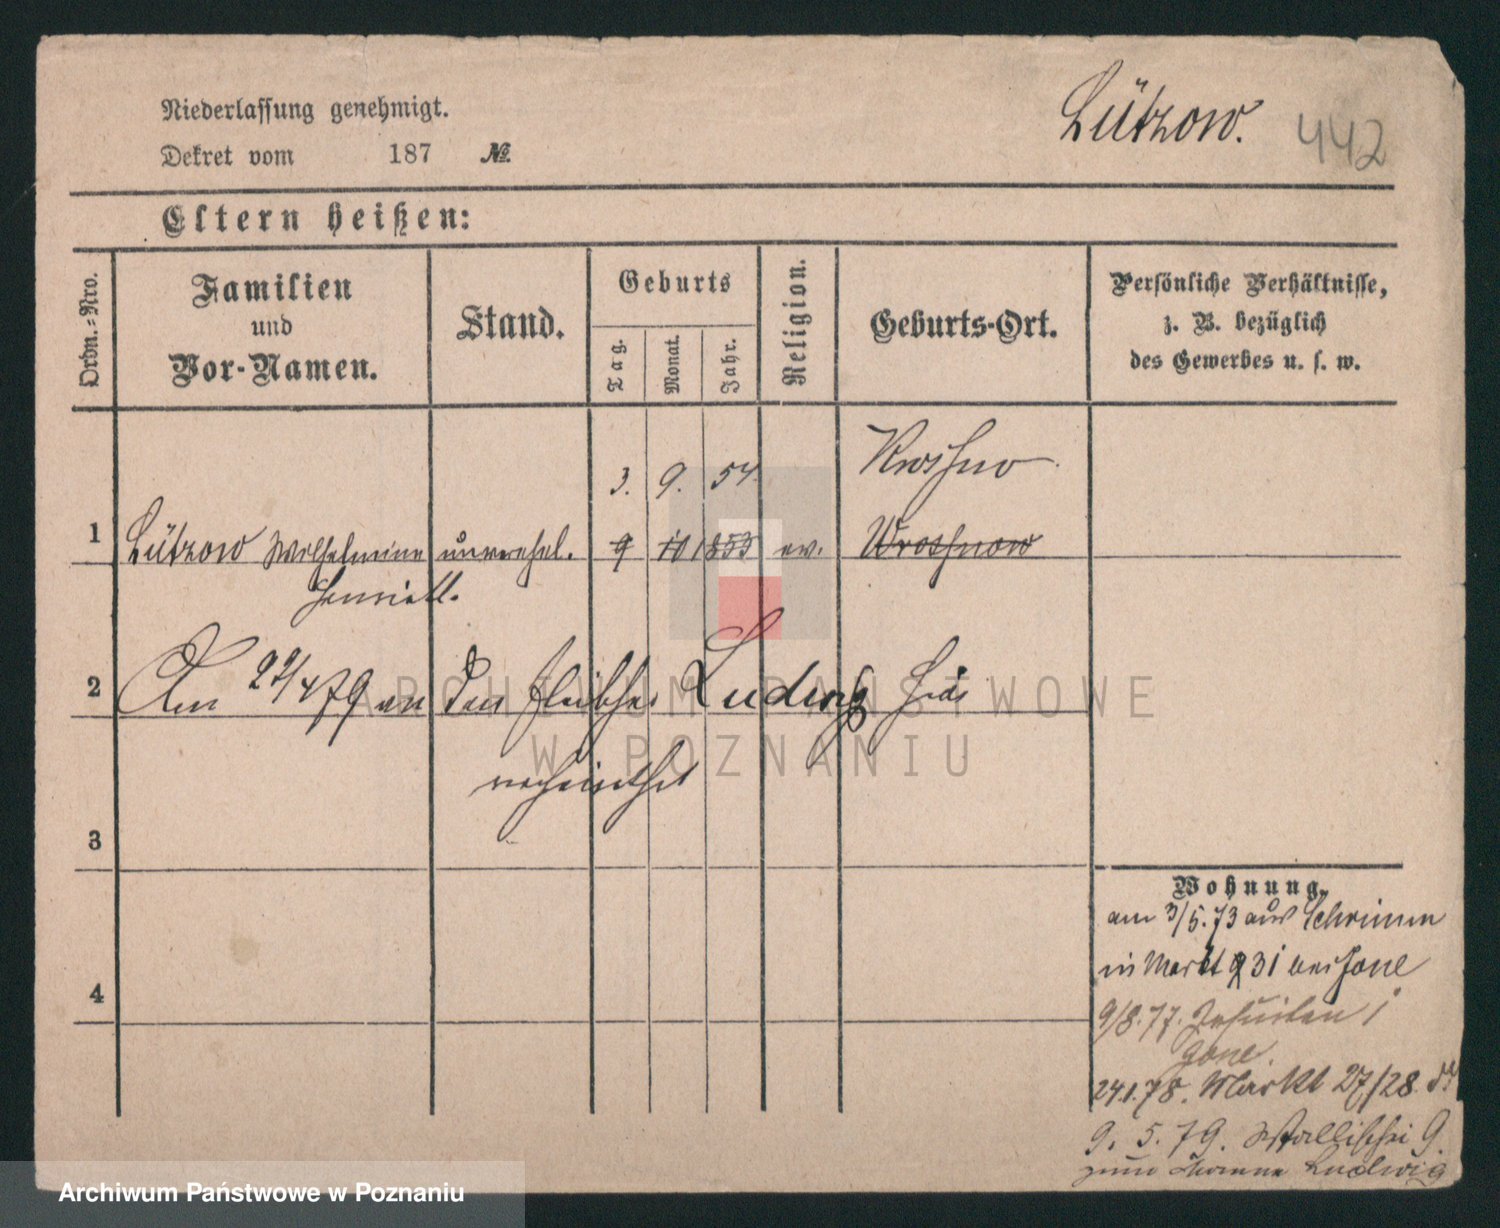 Niederlassung genehmigt.
Dekret vom 187 №
Lützow. 442
Eltern heißen:
Ordn.-Nro.
Familien
und
Vor-Namen.
Stand.
Geburts
Tag.
Monat.
Jahr.
Religion.
Geburts-Ort.
Persönliche Verhältnisse,
z. B. bezüglich
des Gewerbes u. s. w.
3. 9. 54.
1 Lützow Wilhelmine unverehel. 9 10 1853 ev.
Henriett.
2 Am 29/4 79 an den Fleischer Ludwig
verheirathet
3
4
Wohnung.
am 3/5.73 aus Schrimm
in Markt 31 bei
9/8.77. Jesuiten
24.1.78. Markt 27/28.
9. 5. 79. Wallischei 9
zum Manne Ludwig
ARCHIWUM PAŃSTWOWE
W POZNANIU
Archiwum Państwowe w Poznaniu